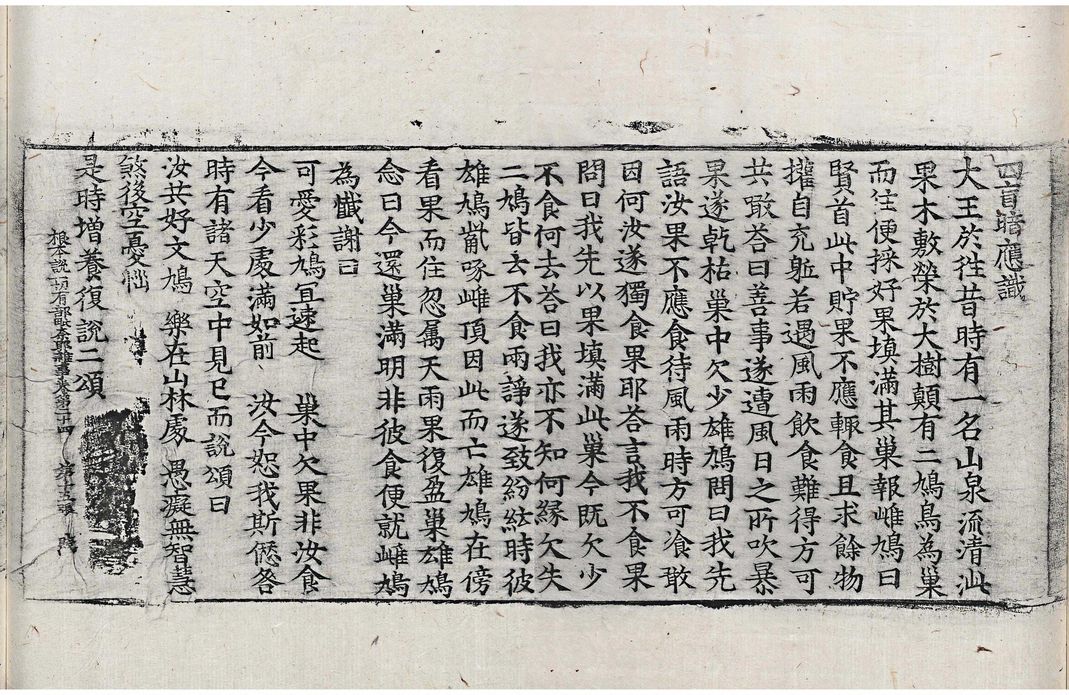 四盲暗應識
大王於往昔時有一名山泉流清泚
果木敷榮於大樹顛有二鳩鳥為巢
而住便採好果填滿其巢報雌鳩曰
賢首此中貯果不應輒食且求餘物
權自充軀若遇風雨飲食難得方可
共噉荅曰善事遂遭風日之所吹暴
果遂乾枯巢中欠少雄鳩問曰我先
語汝果不應食待風雨時方可飡噉
因何汝遂獨食果耶荅言我不食果
問曰我先以果填滿此巢今既欠少
不食何去荅曰我亦不知何緣欠失
二鳩皆云不食兩諍遂致紛紜時彼
雄鳩觜啄雌頂因此而亡雄鳩在傍
看果而住忽屬天雨果復盈巢雄鳩
念曰今還巢滿明非彼食便就雌鳩
為懺謝曰
可愛彩鳩冝速起 巢中欠果非汝食
今看少處滿如前 汝今恕我斯僁咎
時有諸天空中見已而說頌曰
汝共好文鳩 樂在山林處 愚癡無智慧
煞後空憂惱
是時增養復說二頌
根本說一切有部毗奈耶雜事卷第二十四 第十五張